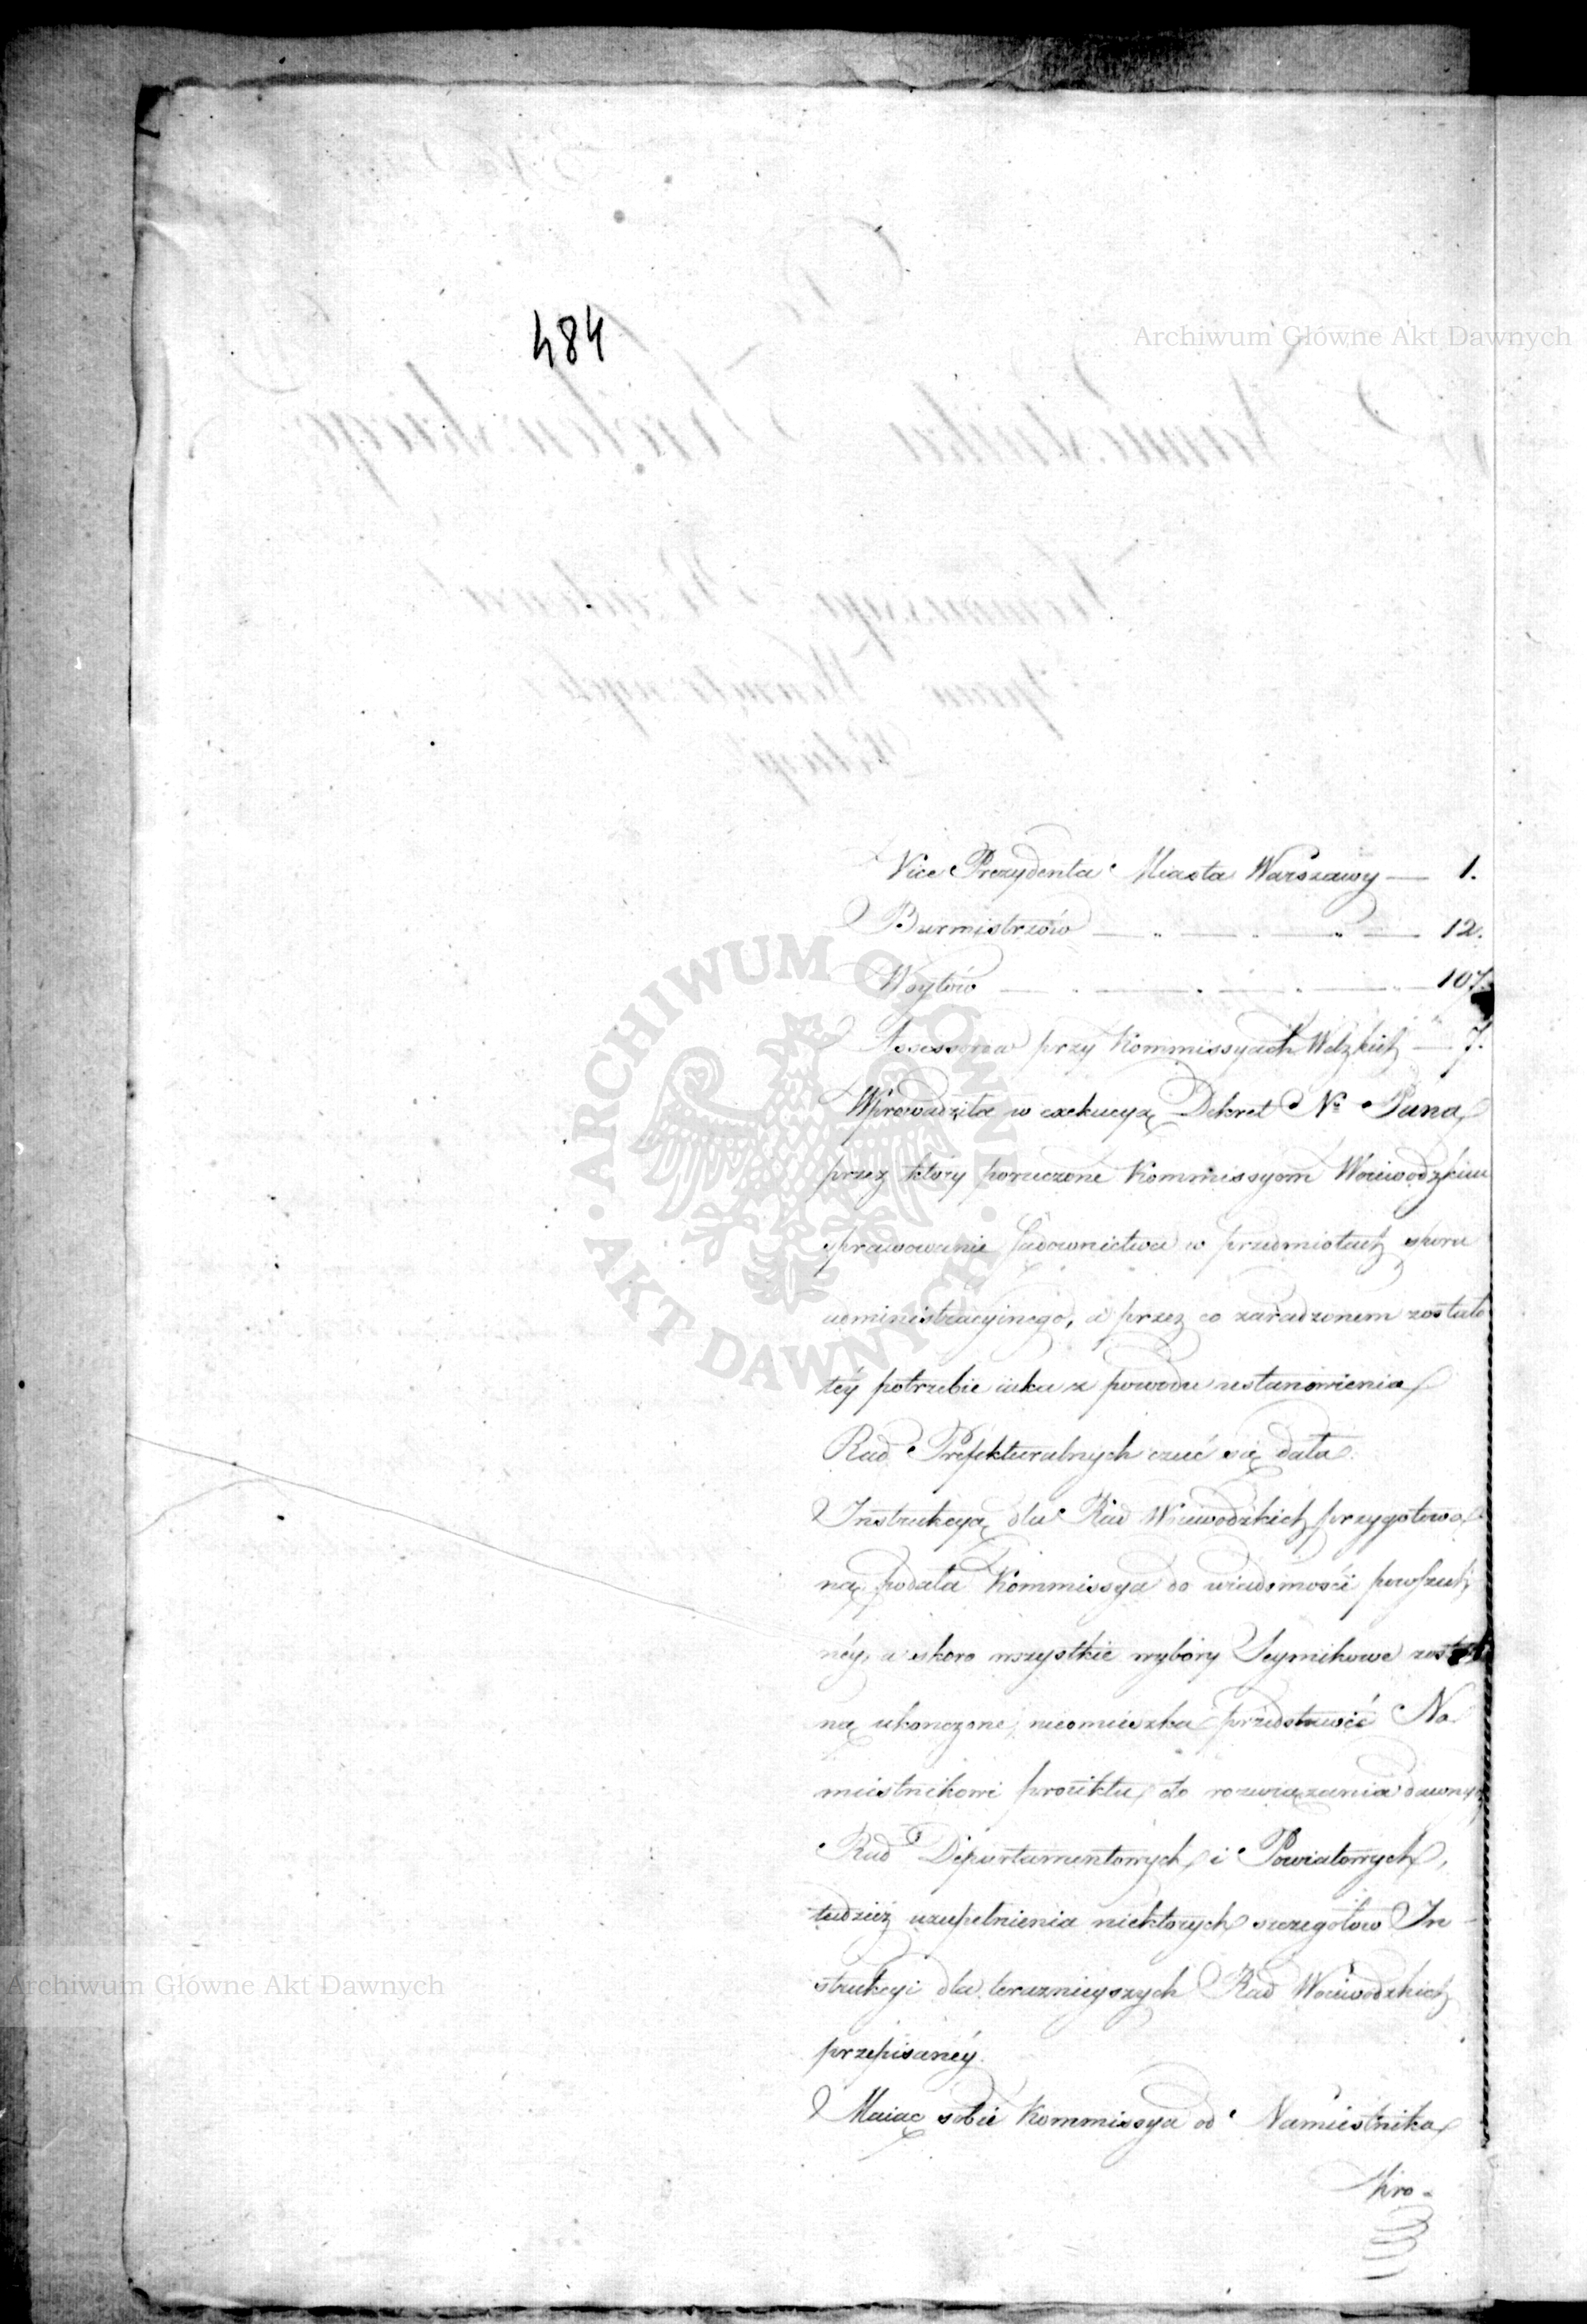 484
Archiwum Główne Akt Dawnych
Vice Prezydenta Miasta Warszawy — 1.
Burmistrzów — „ — . — „ — 12.
Woytów — . — . — . — 107.
Assessorow przy Kommissyach Wdzkich — 7.
Wprowadziła w exekucyą Dekret Nº Pana
przez który poruczone Kommissyom Woiewodzkim
sprawowanie Sądownictwa w przedmiotach sporu
administracyinego, a przez co zaradzonem zostało
téy potrzebie iaka z powodu ustanowienia
Rad Prefekturalnych czuć się dała.
Instrukcyą dla Rad Woiewodzkich przygotowa
ną podała Kommissya do wiadomości powszech
néy, a skoro wszystkie wybory Seymikowe zosta
ną ukonczone, nieomieszka przedstawić Na
miestnikowi proiektu do rozwiązania dawnych
Rad Departamentowych i Powiatowych,
tudzież uzupełnienia niektorych szczegołow In-
strukcyi dla teraznieyszych Rad Woiewodzkich
przepisanéy.
Maiąc sobie Kommissya od Namiestnika
Kro-
ARCHIWUM GŁÓWNE AKT DAWNYCH
Archiwum Główne Akt Dawnych